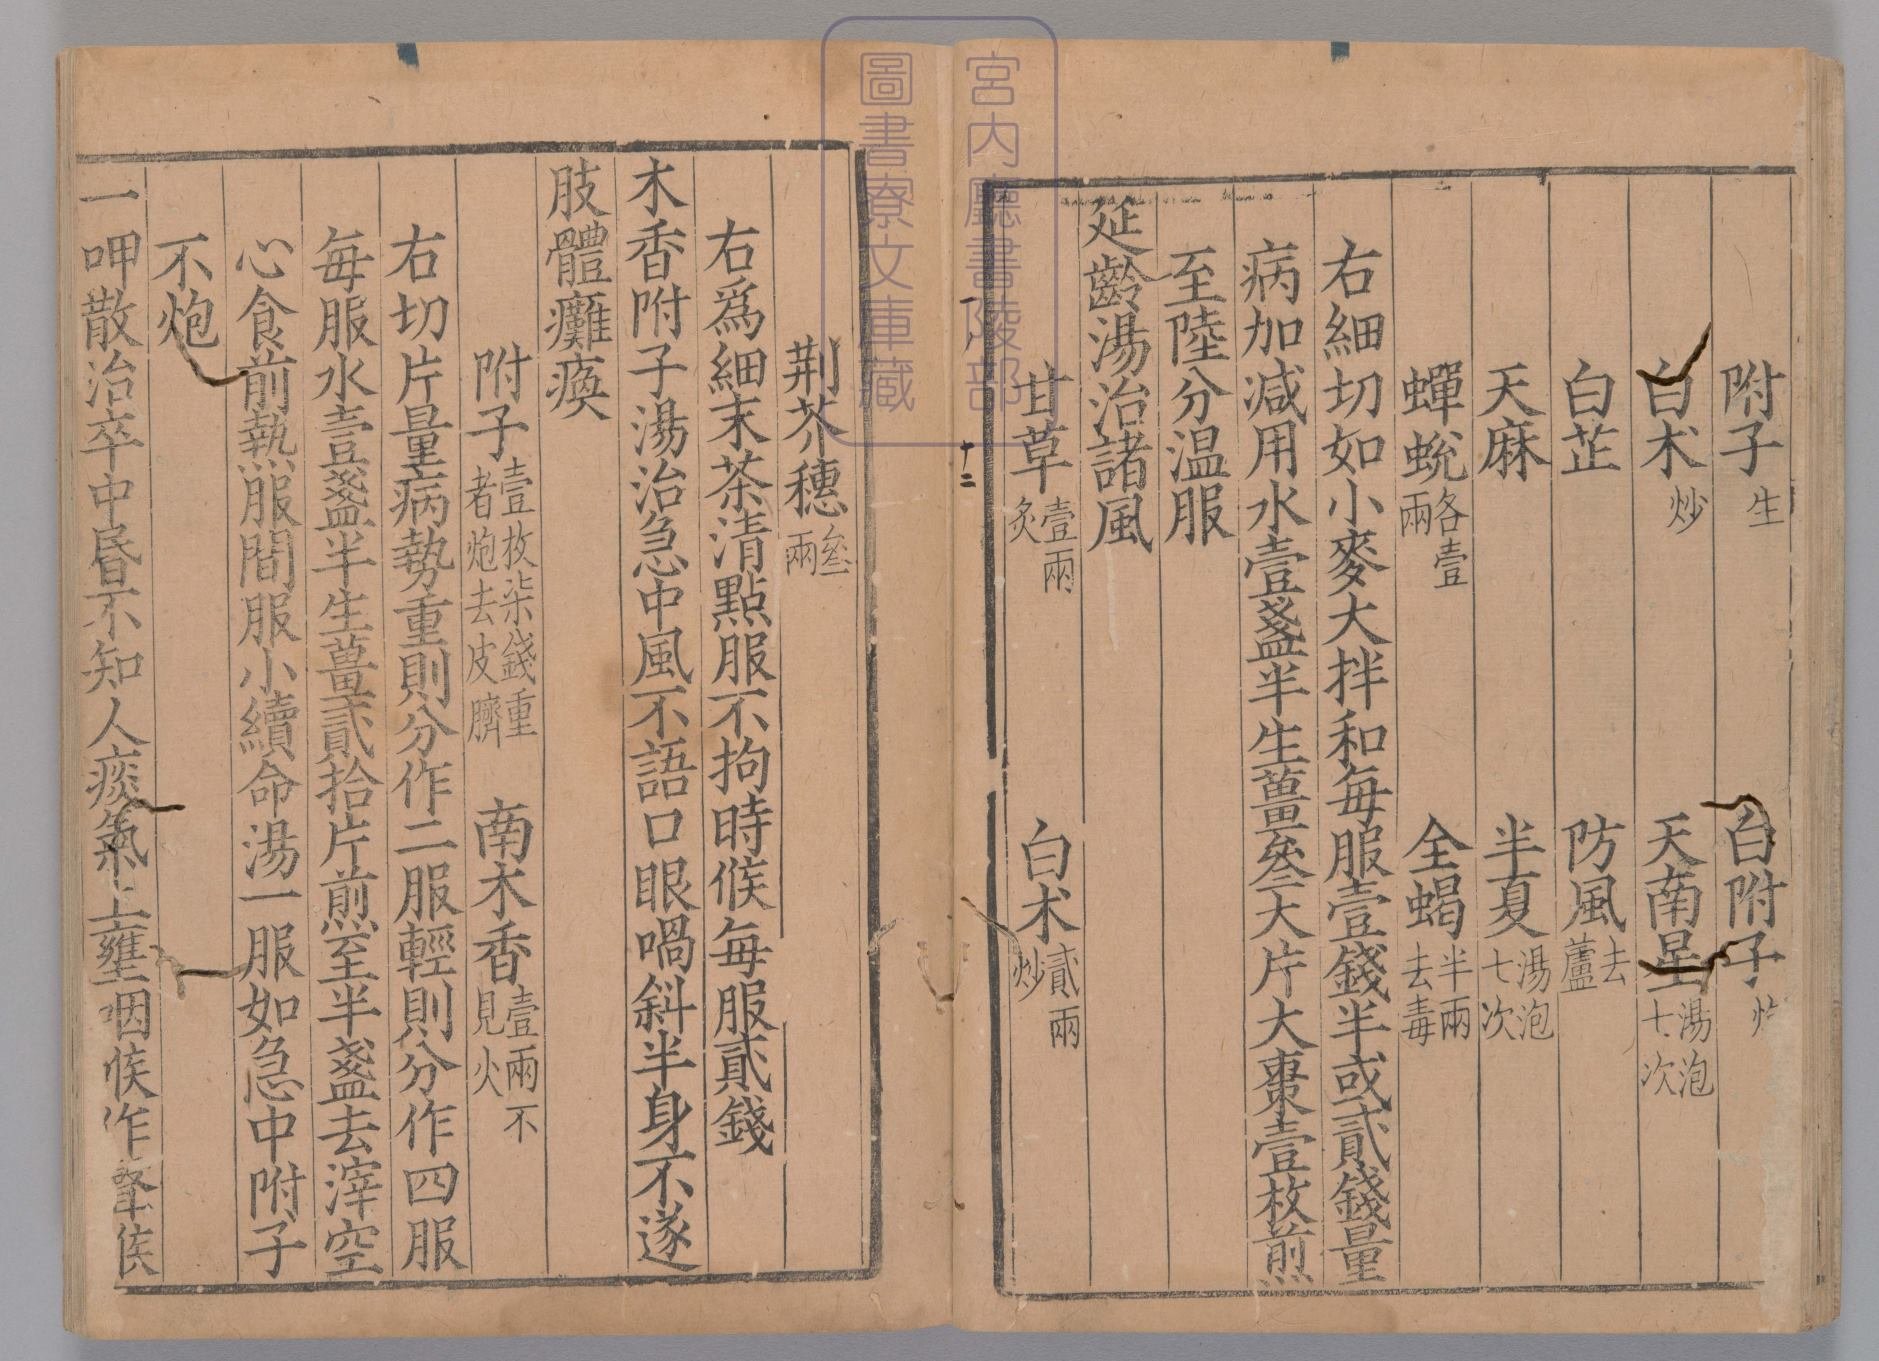 附子生　白附子
白朮炒　天南星湯泡七次
白芷　防風去蘆
天麻　半夏湯泡七次
蟬蛻各壹兩　全蝎半兩去毒
右細切如小麥大拌和每服壹錢半或貳錢量
病加減用水壹盞半生薑叁大片大棗壹枚煎
至陸分温服
延齡湯治諸風
甘草壹兩炙　白朮貳兩炒
十二
荆芥穗叁兩
右爲細末茶清點服不拘時候每服貳錢
木香附子湯治急中風不語口眼喎斜半身不遂
肢體癱瘓
附子壹枚柒錢重者炮去皮臍　南木香壹兩不見火
右切片量病勢重則分作二服輕則分作四服
每服水壹盞半生薑貳拾片煎至半盞去滓空
心食前熱服間服小續命湯一服如急中附子
不炮
一呷散治卒中昏不知人痰氣上壅咽喉作聲喉
宮内廳書陵部
圖書寮文庫藏